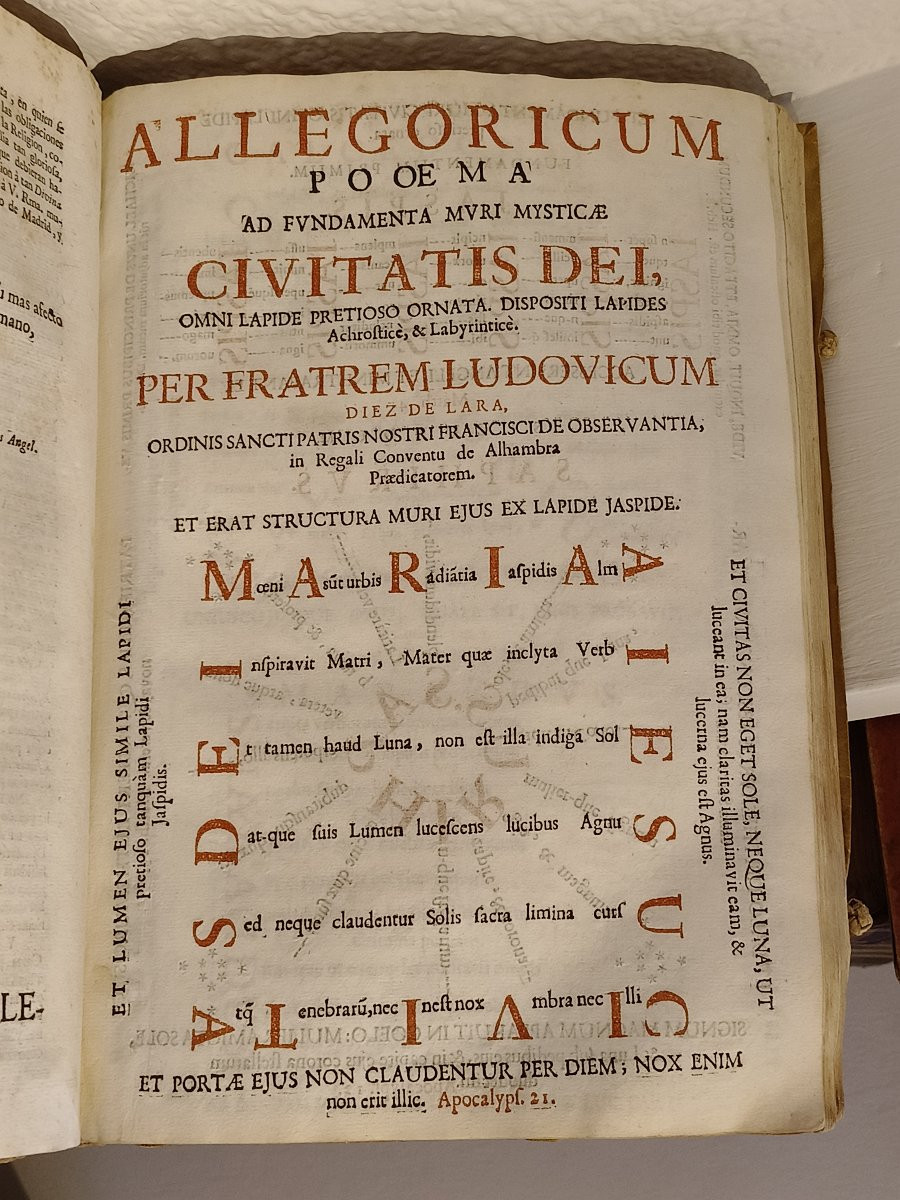 ta, en quien ſe
las obligaciones
la Religion, co-
lia tan glorioſa,
que debieran ha-
cion à tan Divina
à V. Rma. mu-
o de Madrid, y
mas afecto
mano,
Angel.
LE-
ALLEGORICUM
POOEMA
AD FVNDAMENTA MVRI MYSTICÆ
CIVITATIS DEI,
OMNI LAPIDE PRETIOSO ORNATA. DISPOSITI LAPIDES
Achroſticè, & Labyrinticè.
PER FRATREM LUDOVICUM
DIEZ DE LARA,
ORDINIS SANCTI PATRIS NOSTRI FRANCISCI DE OBSERVANTIA,
in Regali Conventu de Alhambra
Prædicatorem.
ET ERAT STRUCTURA MURI EJUS EX LAPIDE JASPIDE.
Mœni Aſũt urbis Radiãtia Iaſpidis AlmA
Inſpiravit Matri, Mater quæ inclyta VerbI
Et tamen haud Luna, non eſt illa indiga SolE
Dat-que ſuis Lumen luceſcens lucibus AgnuS
Sed neque claudentur Solis ſacra limina curſU
Atq̃ Tenebrarũ, nec Ineſt nox Vmbra nec IlliC
ET LUMEN EJUS SIMILE LAPIDI
pretioſo tanquàm Lapidi
Jaſpidis.
ET CIVITAS NON EGET SOLE, NEQUE LUNA, UT
luceant in ea; nam claritas illuminavit eam, &
lucerna ejus eſt Agnus.
ET PORTÆ EJUS NON CLAUDENTUR PER DIEM; NOX ENIM
non erit illic. Apocalypſ. 21.